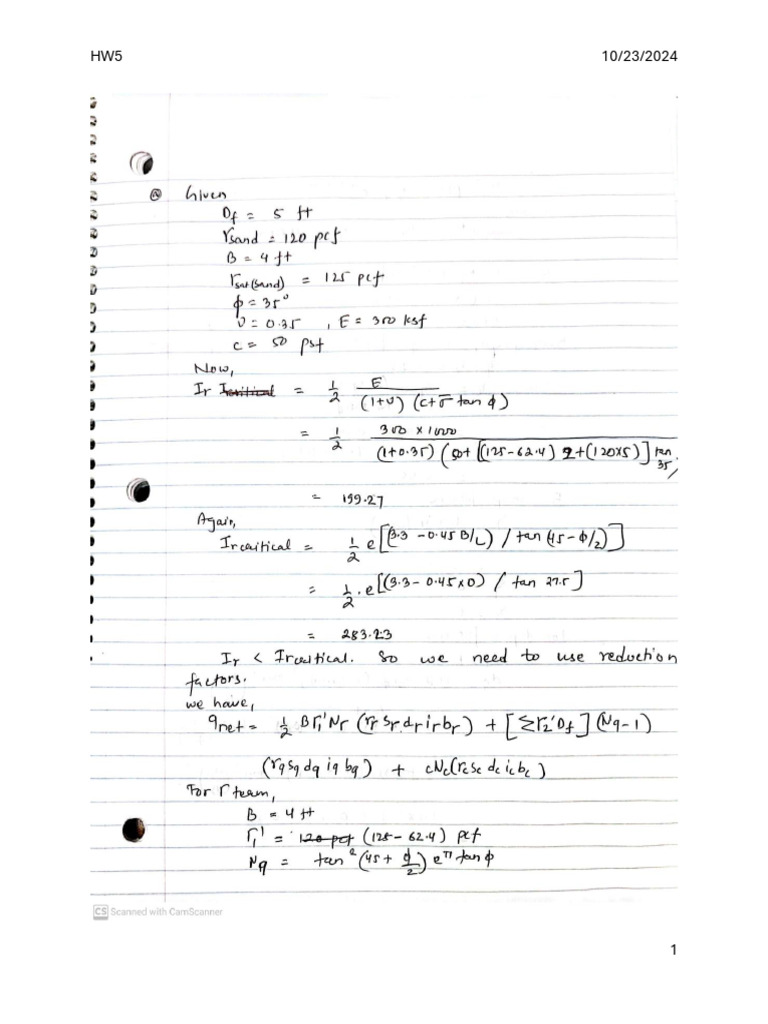 HW5 10/23/2024
ⓐ Given
Df = 5 ft
γsand = 120 pcf
B = 4 ft
γsat(sand) = 125 pcf
ϕ = 35°
ν = 0.35 , E = 300 ksf
c = 50 psf
Now,
Ir Icritical = 1/2 E / (1+ν) (c+σ̄ tan ϕ)
= 1/2 300 x 1000 / (1+0.35) (50+ [(125-62.4) 2+(120x5)] tan 35)
= 199.27
Again,
Ircritical = 1/2 e[(3.3 -0.45 B/L) / tan (45-ϕ/2)]
= 1/2 . e[(3.3- 0.45x0) / tan 27.5]
= 283.23
Ir < Ircritical. So we need to use reduction
factors.
we have,
qnet = 1/2 Bγ1'Nr (rr sr dr ir br) + [Σγ2'Df] (Nq-1)
(rq sq dq iq bq) + cNc(rc sc dc ic bc)
For r team,
B = 4 ft
γ1' = 120 pcf (125- 62.4) pcf
Nq = tan² (45 + ϕ/2) e^π tan ϕ
CS Scanned with CamScanner
1